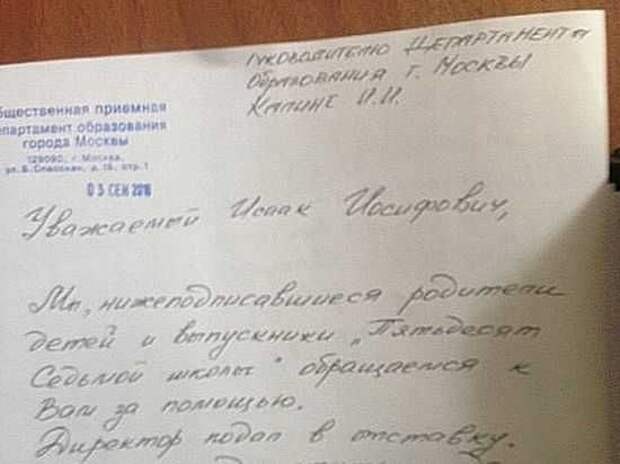 Руководителю Департамента
Образования г. Москвы
Калине И.И.
бщественная приемная
епартамент образования
города Москвы
129090, г. Москва,
ул. Б. Спасская, д. 15, стр. 1
05 СЕН 2016
Уважаемый Исаак Иосифович,
Мы, нижеподписавшиеся родители
детей и выпускники „Пятьдесят
Седьмой школы" обращаемся к
Вам за помощью.
Директор подал в отставку.